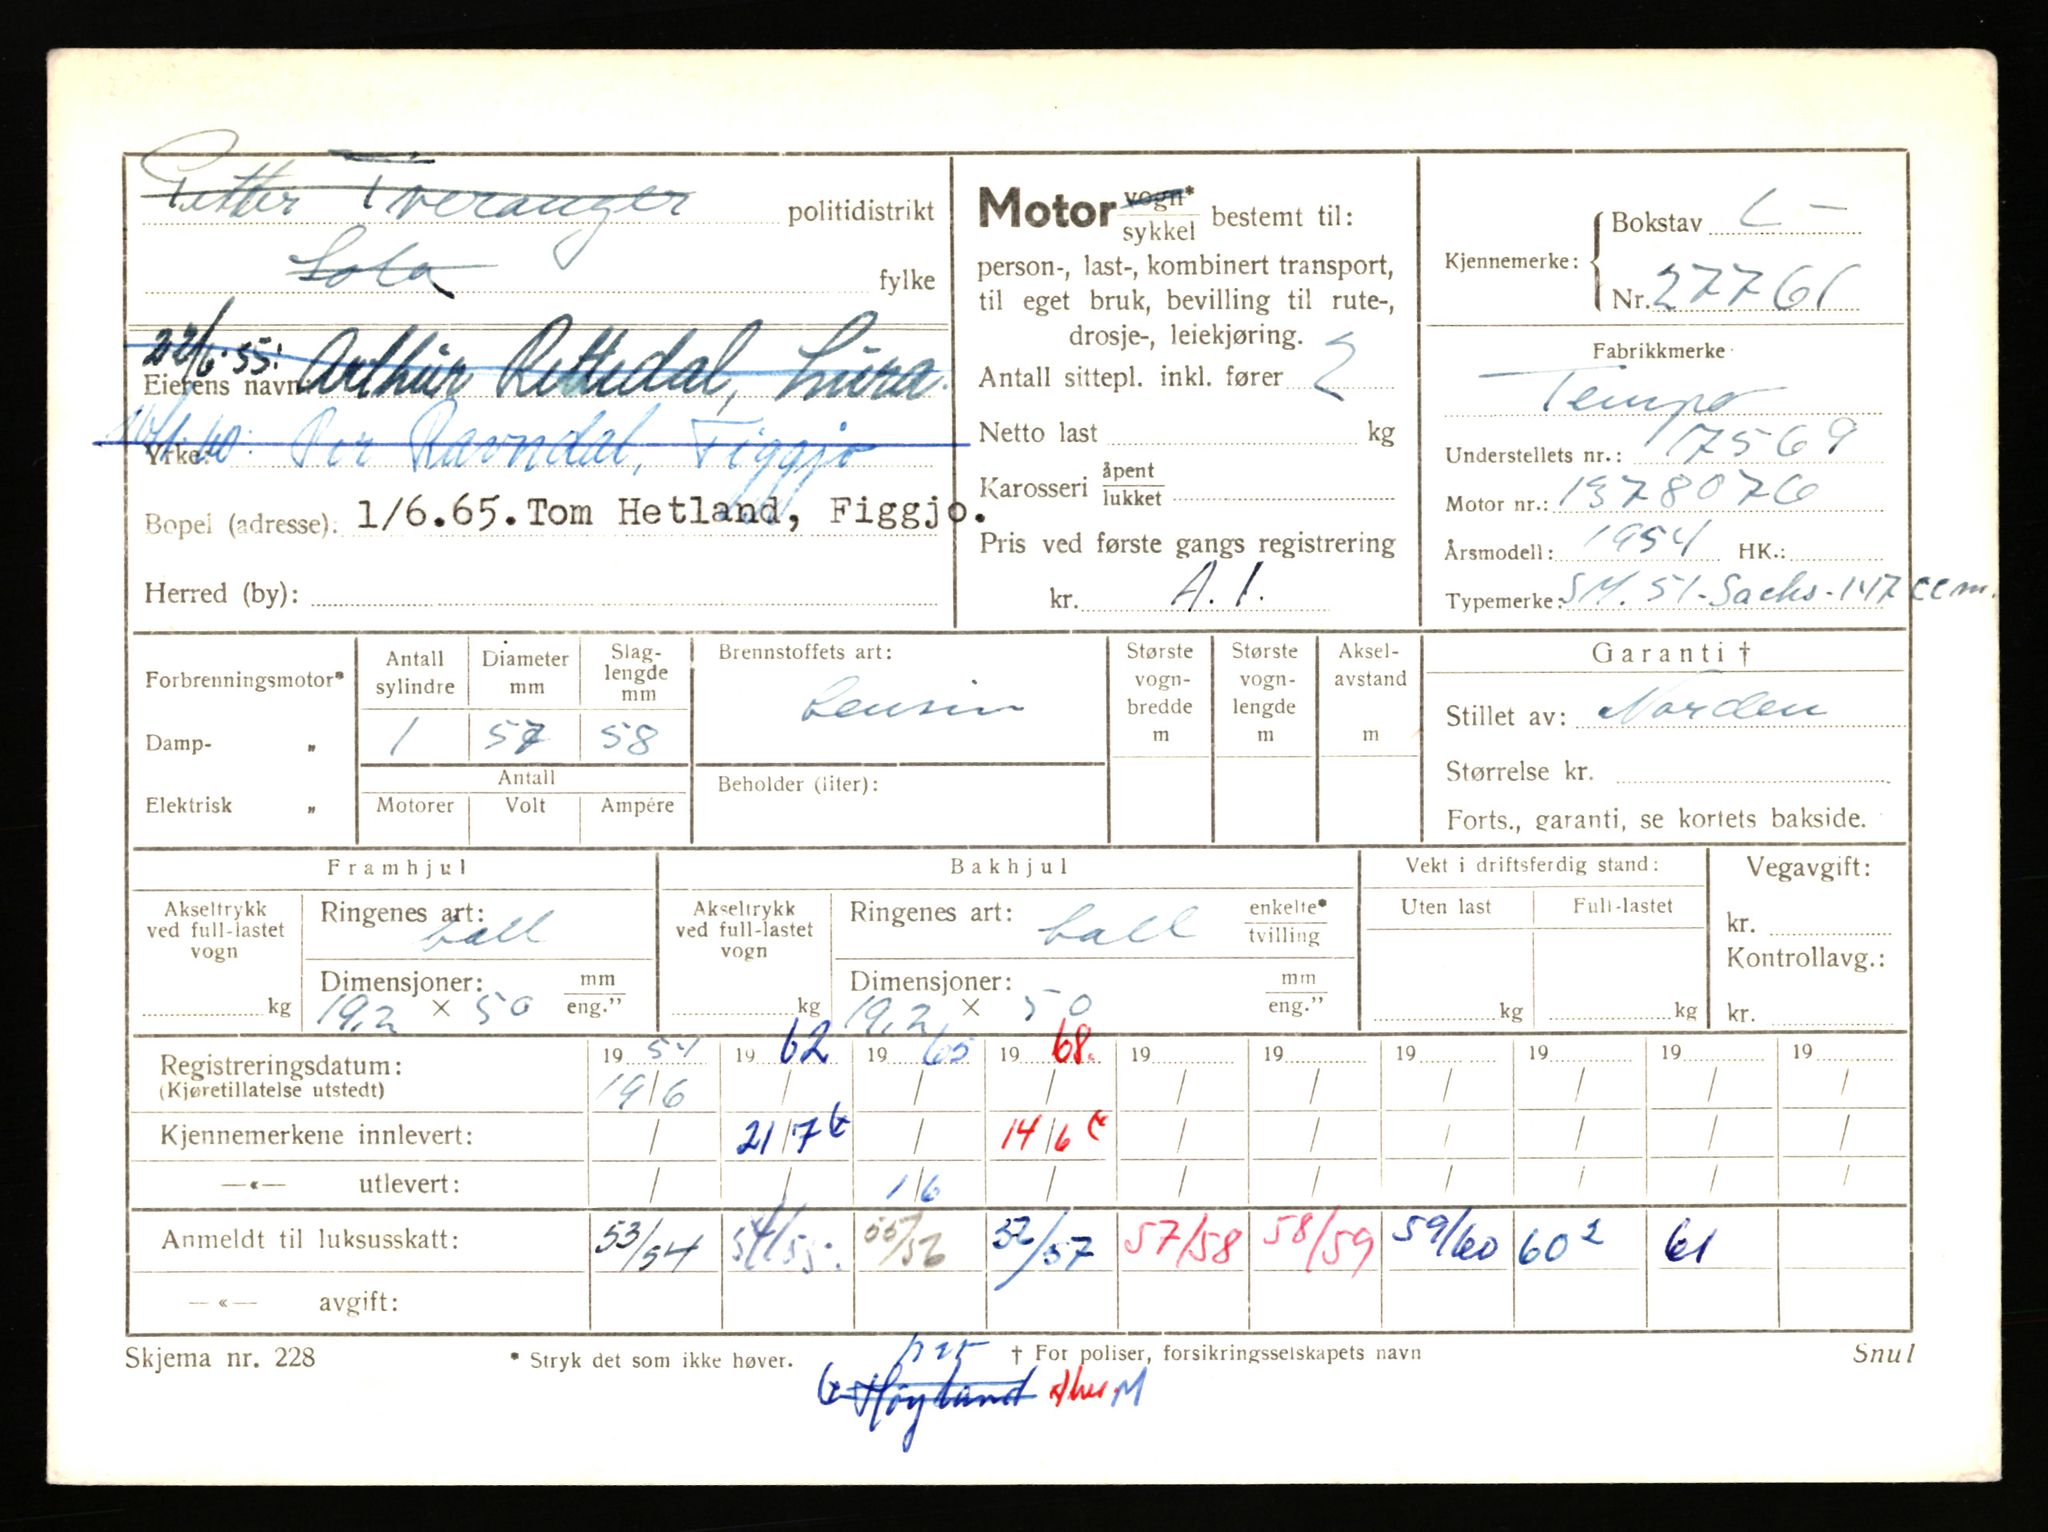 Petter Tveranger politidistrikt
Sola fylke
22/6 55: Eierens navn: Arthur Rettedal, Lura.
Yrke: Per Ravndal, Figgjo
Bopel (adresse): 1/6.65. Tom Hetland, Figgjo.
Herred (by):
Motor vogn* / sykkel bestemt til:
person-, last-, kombinert transport,
til eget bruk, bevilling til rute-,
drosje-, leiekjøring.
Antall sittepl. inkl. fører 2
Netto last kg
Karosseri åpent / lukket
Pris ved første gangs registrering
kr. A. 1.
Kjennemerke: Bokstav L-
Nr. 27761
Fabrikkmerke
Tempo
Understellets nr.: 17569
Motor nr.: 1378076
Årsmodell: 1954 HK.:
Typemerke: SM. 51-Sachs-147 ccm.
Forbrenningsmotor*
Damp- „
Elektrisk „
Antall sylindre 1
Diameter mm 57
Slag-lengde mm 58
Antall
Motorer Volt Ampére
Brennstoffets art:
bensin
Beholder (liter):
Største vogn-bredde m
Største vogn-lengde m
Aksel-avstand m
Garanti †
Stillet av: Norden
Størrelse kr.
Forts., garanti, se kortets bakside.
Framhjul
Akseltrykk ved full-lastet vogn kg
Ringenes art: ball
Dimensjoner: mm / eng."
19,2 × 50
Bakhjul
Akseltrykk ved full-lastet vogn kg
Ringenes art: ball enkelte* / tvilling
Dimensjoner: mm / eng."
19,2 × 50
Vekt i driftsferdig stand:
Uten last Full-lastet
kg kg
Vegavgift:
kr.
Kontrollavg.:
kr.
Registreringsdatum: 1954 1962 1965 1968. 19 19 19 19 19 19
(Kjøretillatelse utstedt) 19/6 / / / / / / / / /
Kjennemerkene innlevert: / 21/7 / 14/6 / / / / / /
—«— utlevert: / / 1/6 / / / / / / /
Anmeldt til luksusskatt: 53/54 54/55: 55/56 /57 57/58 58/59 59/60 60² 61
—«— avgift:
Skjema nr. 228 * Stryk det som ikke høver. † For poliser, forsikringsselskapets navn Snul
Høyland